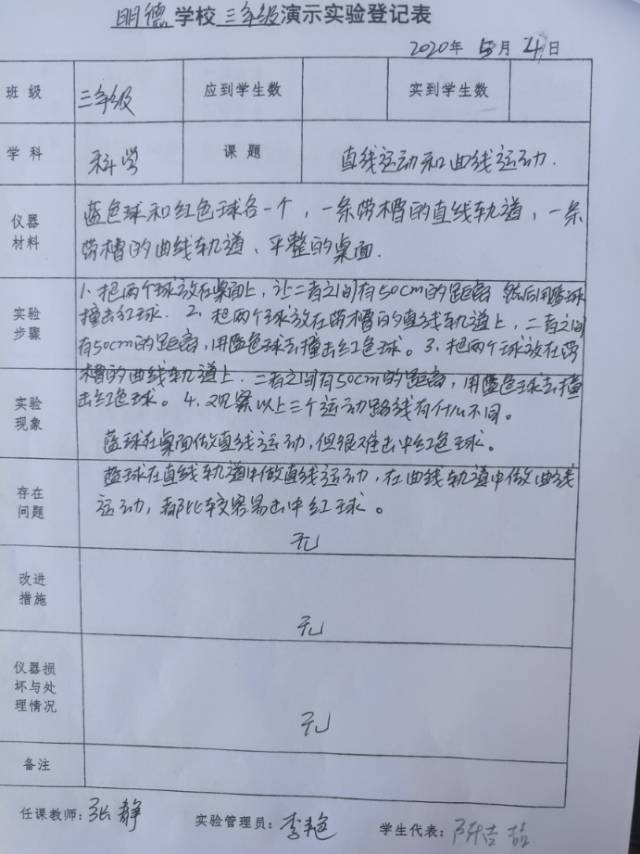 明德学校三年级演示实验登记表
2020年5月4日
班级 三年级 应到学生数 实到学生数
学科 科学 课题 直线运动和曲线运动.
仪器材料 蓝色球和红色球各一个，一条带槽的直线轨道，一条
带槽的曲线轨道、平整的桌面.
实验步骤 1、把两个球放在桌面上，让二者之间有50cm的距离 然后用蓝球
撞击红球. 2、把两个球放在带槽的直线轨道上，二者之间
有50cm的距离，用蓝色球去撞击红色球。3、把两个球放在带
槽的曲线轨道上.二者之间有50cm的距离，用蓝色球去撞
实验现象 击红色球。4、观察以上三个运动路线有什么不同。
蓝球在桌面做直线运动，但很难击中红色球。
存在问题 蓝球在直线轨道中做直线运动，在曲线轨道中做曲线
运动，都比较容易击中红球。
无
改进措施 无
仪器损坏与处理情况 无
备注
任课教师：张静 实验管理员：李艳 学生代表：